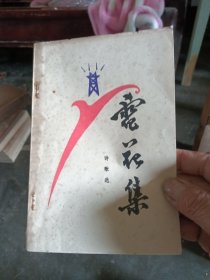 電花集
诗歌选